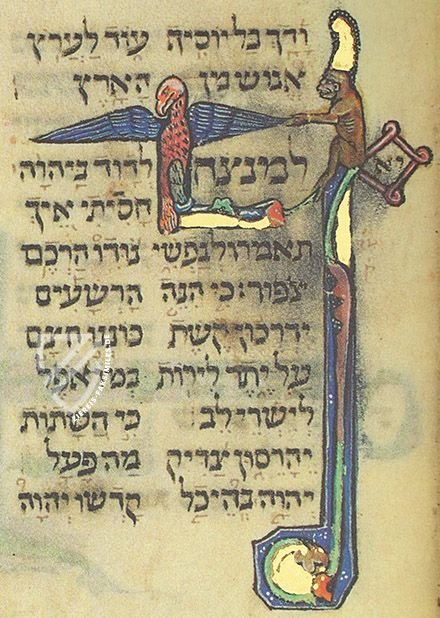 ודך בל יוסיף עוד לערץ
אנוש מן הארץ
יא
למנצח לדוד ביהוה
חסיתי איך
תאמרו לנפשי נודו הרכם
צפור: כי הנה הרשעים
ידרכון קשת כוננו חצם
על יתר לירות במו אפל
לישרי לב כי השתות
יהרסון צדיק מה פעל
יהוה בהיכל קדשו יהוה